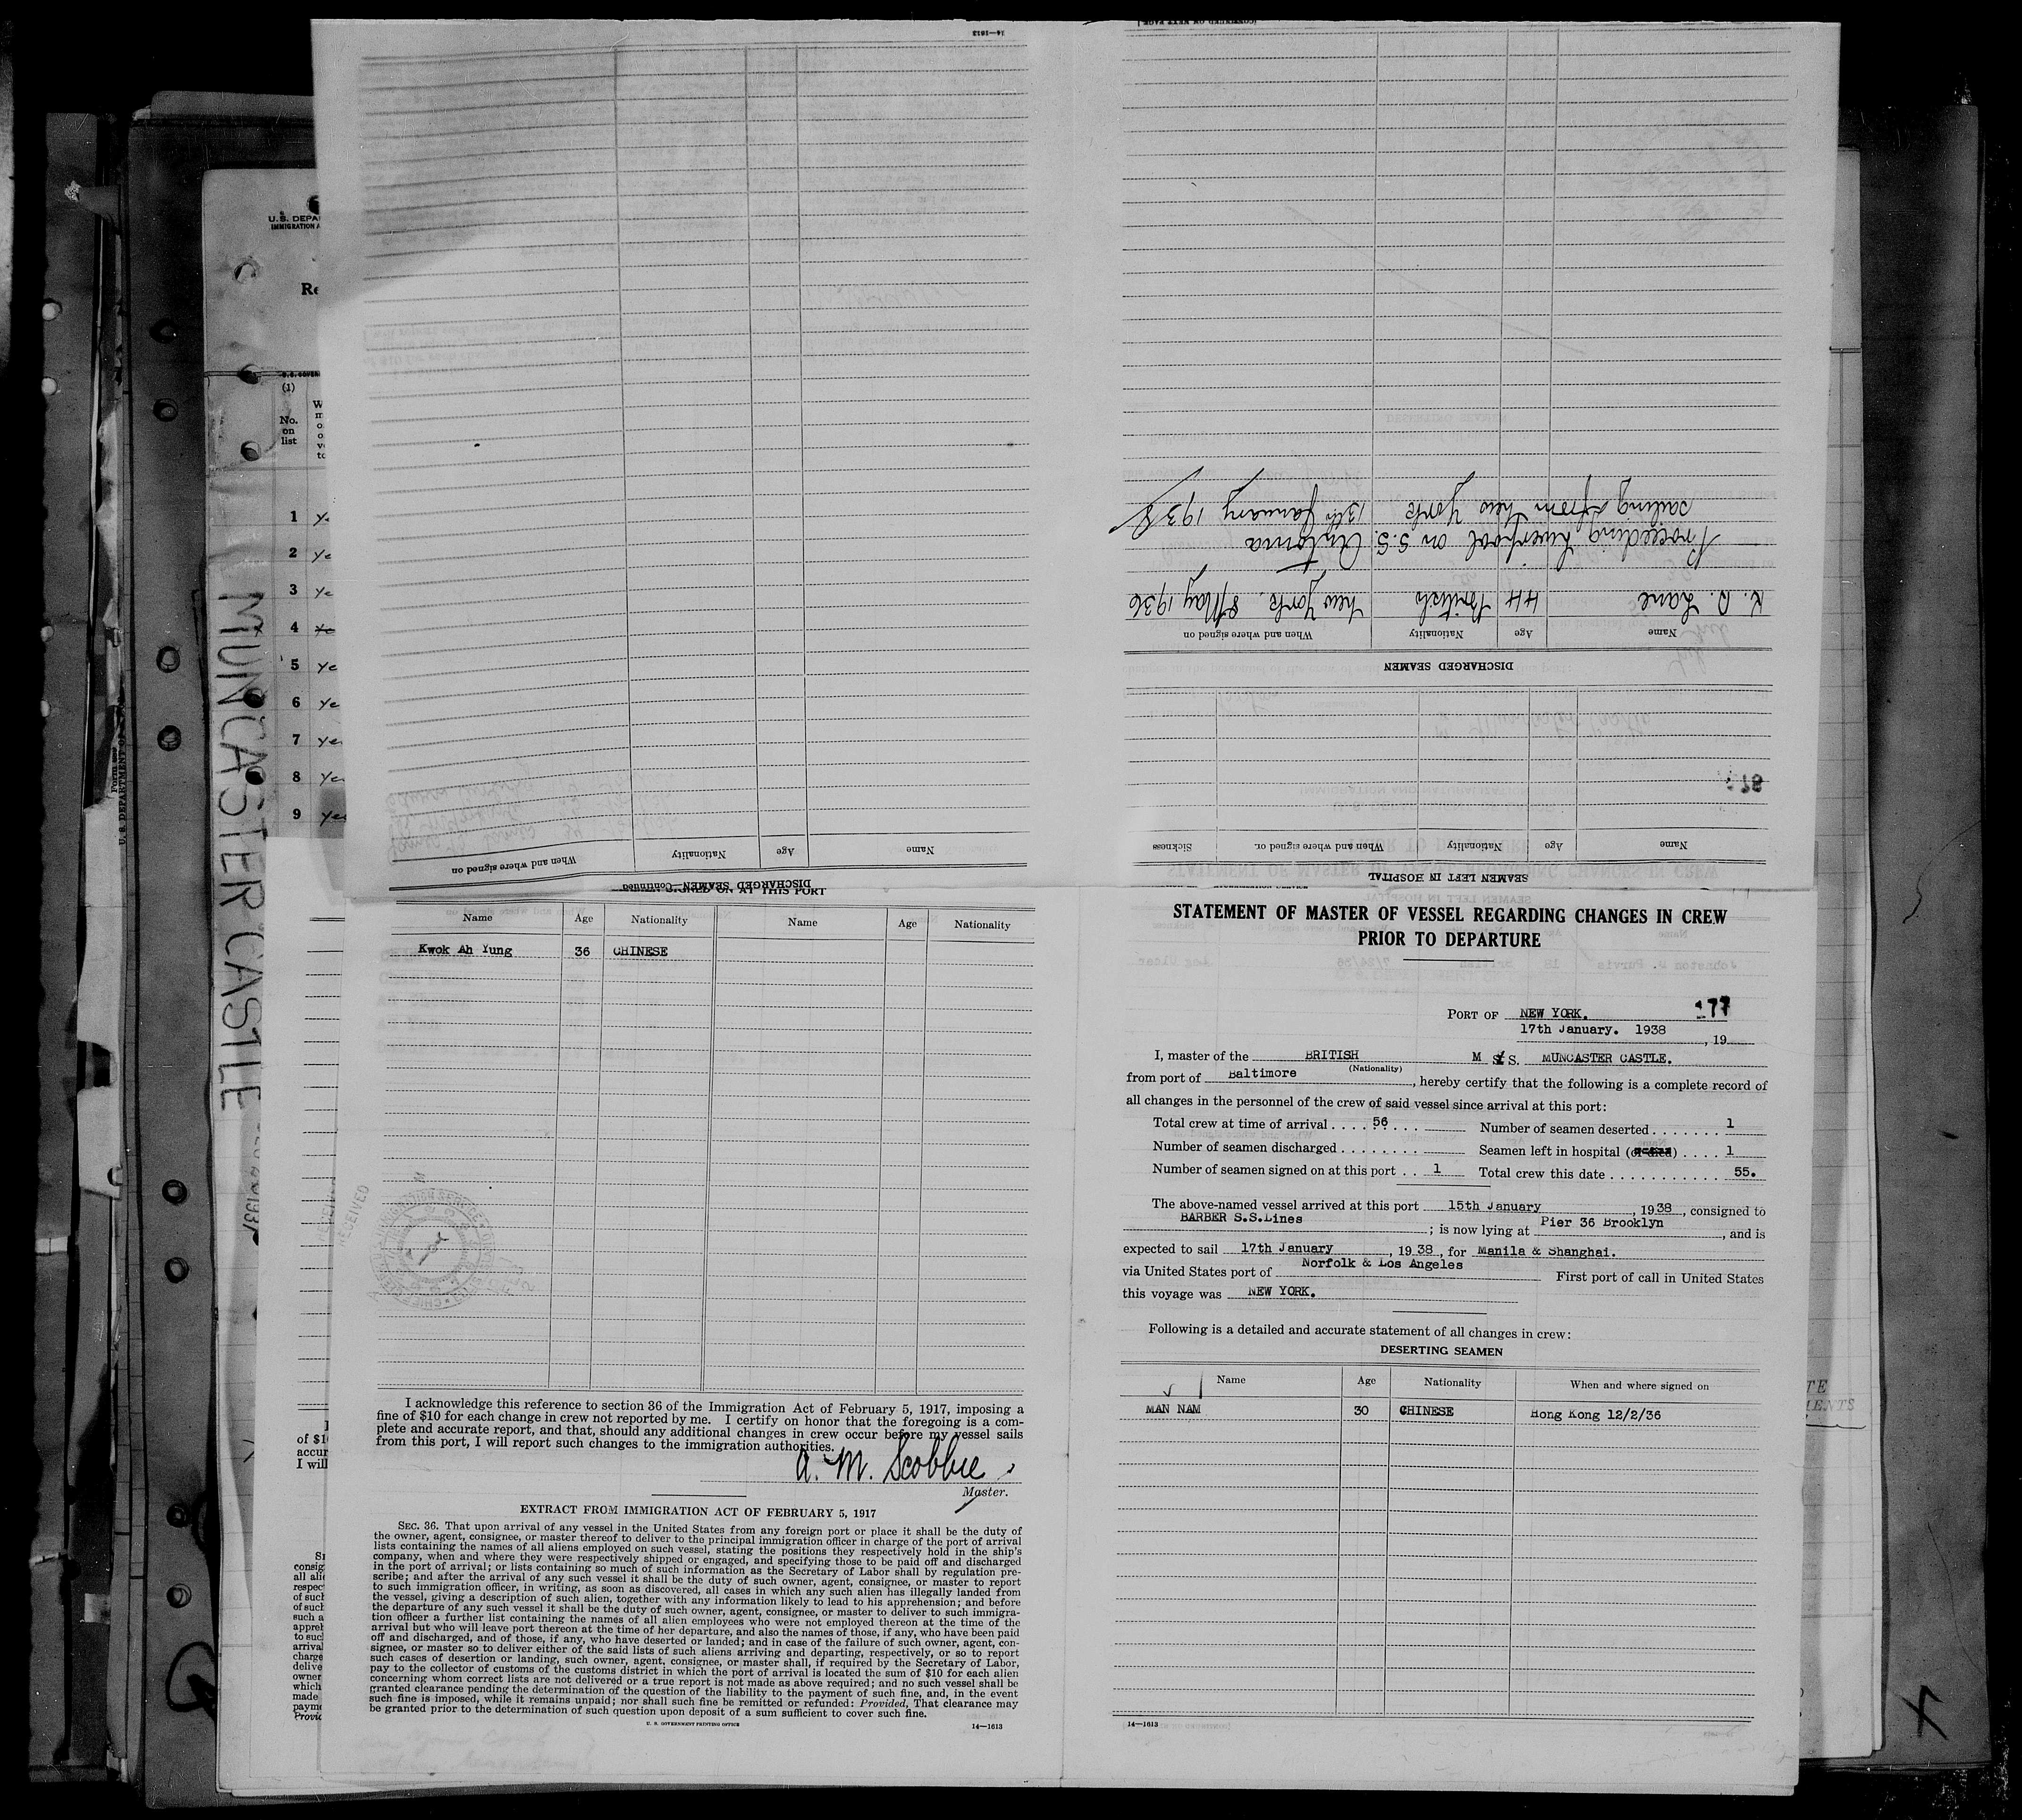 14—1613
Name Age Nationality When and where signed on
DISCHARGED SEAMEN—Continued
[CONTINUED ON NEXT PAGE]
sailing from New York 13th January 1938
Proceeding Liverpool on S.S. Antonia
K. R. Lane 44 British New York. 8 May 1936
Name Age Nationality When and where signed on
DISCHARGED SEAMEN
178
Name Age Nationality When and where signed on Sickness
SEAMEN LEFT IN HOSPITAL
U. S. DEPA
IMMIGRATION A
Re
(1)
No.
on
list
1 Ye
2 Ye
3 Ye
4 Ye
5 Ye
6 Ye
7 Yes
8 Yes
9 Yes
MUNCASTER CASTLE
U. S. DEPARTMENT OF
SIGNED ON AT THIS PORT
Name Age Nationality Name Age Nationality
Kwok Ah Yung 36 CHINESE
RECEIVED
I acknowledge this reference to section 36 of the Immigration Act of February 5, 1917, imposing a
fine of $10 for each change in crew not reported by me. I certify on honor that the foregoing is a com-
plete and accurate report, and that, should any additional changes in crew occur before my vessel sails
from this port, I will report such changes to the immigration authorities.
A. M. Scobbie
Master.
EXTRACT FROM IMMIGRATION ACT OF FEBRUARY 5, 1917
SEC. 36. That upon arrival of any vessel in the United States from any foreign port or place it shall be the duty of
the owner, agent, consignee, or master thereof to deliver to the principal immigration officer in charge of the port of arrival
lists containing the names of all aliens employed on such vessel, stating the positions they respectively hold in the ship's
company, when and where they were respectively shipped or engaged, and specifying those to be paid off and discharged
in the port of arrival; or lists containing so much of such information as the Secretary of Labor shall by regulation pre-
scribe; and after the arrival of any such vessel it shall be the duty of such owner, agent, consignee, or master to report
to such immigration officer, in writing, as soon as discovered, all cases in which any such alien has illegally landed from
the vessel, giving a description of such alien, together with any information likely to lead to his apprehension; and before
the departure of any such vessel it shall be the duty of such owner, agent, consignee, or master to deliver to such immigra-
tion officer a further list containing the names of all alien employees who were not employed thereon at the time of the
arrival but who will leave port thereon at the time of her departure, and also the names of those, if any, who have been paid
off and discharged, and of those, if any, who have deserted or landed; and in case of the failure of such owner, agent, con-
signee, or master so to deliver either of the said lists of such aliens arriving and departing, respectively, or so to report
such cases of desertion or landing, such owner, agent, consignee, or master shall, if required by the Secretary of Labor,
pay to the collector of customs of the customs district in which the port of arrival is located the sum of $10 for each alien
concerning whom correct lists are not delivered or a true report is not made as above required; and no such vessel shall be
granted clearance pending the determination of the question of the liability to the payment of such fine, and, in the event
such fine is imposed, while it remains unpaid; nor shall such fine be remitted or refunded: Provided, That clearance may
be granted prior to the determination of such question upon deposit of a sum sufficient to cover such fine.
U. S. GOVERNMENT PRINTING OFFICE 14—1613
STATEMENT OF MASTER OF VESSEL REGARDING CHANGES IN CREW
PRIOR TO DEPARTURE
177
PORT OF NEW YORK.
17th January. 1938
, 19
I, master of the BRITISH M S S. MUNCASTER CASTLE.
(Nationality)
from port of Baltimore, hereby certify that the following is a complete record of
all changes in the personnel of the crew of said vessel since arrival at this port:
Total crew at time of arrival . . . . 56 . . . Number of seamen deserted . . . . . . . 1
Number of seamen discharged . . . . . . . . Seamen left in hospital (or died) . . . . 1
Number of seamen signed on at this port . . 1 Total crew this date . . . . . . . . . . . . 55.
The above-named vessel arrived at this port 15th January, 1938, consigned to
BARBER S.S.Lines ; is now lying at Pier 36 Brooklyn, and is
expected to sail 17th January, 1938, for Manila & Shanghai.
via United States port of Norfolk & Los Angeles First port of call in United States
this voyage was NEW YORK.
Following is a detailed and accurate statement of all changes in crew:
DESERTING SEAMEN
Name Age Nationality When and where signed on
MAN NAM 30 CHINESE Hong Kong 12/2/36
14—1613